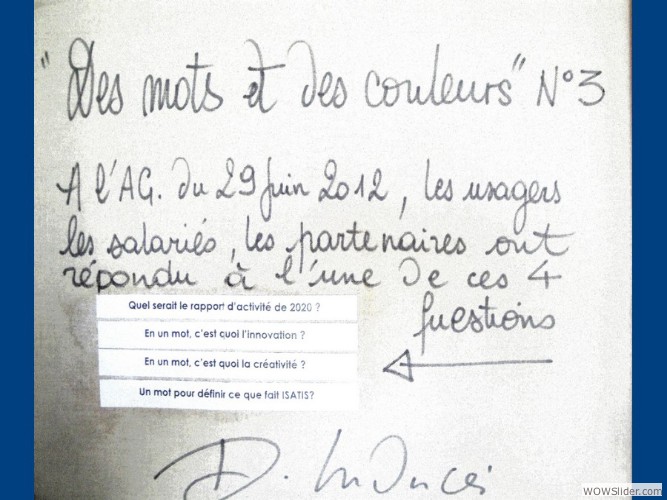 "Des mots et des couleurs" N°3
A l'AG. du 29 juin 2012, les usagers
les salariés, les partenaires ont
répondu à l'une de ces 4
questions
Quel serait le rapport d'activité de 2020 ?
En un mot, c'est quoi l'innovation ?
En un mot, c'est quoi la créativité ?
Un mot pour définir ce que fait ISATIS?
D.
WOWSlider.com